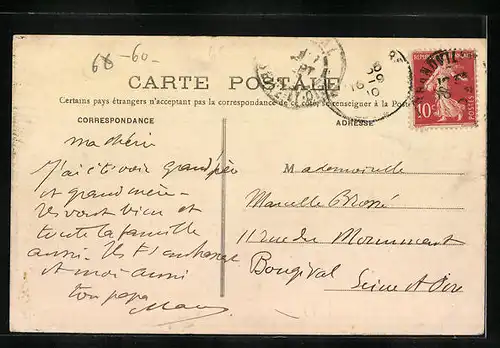 68-60-
CARTE POSTALE
Certains pays étrangers n'acceptent pas la correspondance de ce côté, se renseigner à la Poste
CORRESPONDANCE
ADRESSE
ma chérie
J'ai été voir grand père
et grand mère -
Ils vont bien et
toute la famille
aussi. Ils t'embrasse
et moi aussi
ton papa
Mademoiselle
Marcelle Brossé
11 rue du Monument
Bougival
Seine et Oise
10c
POSTES